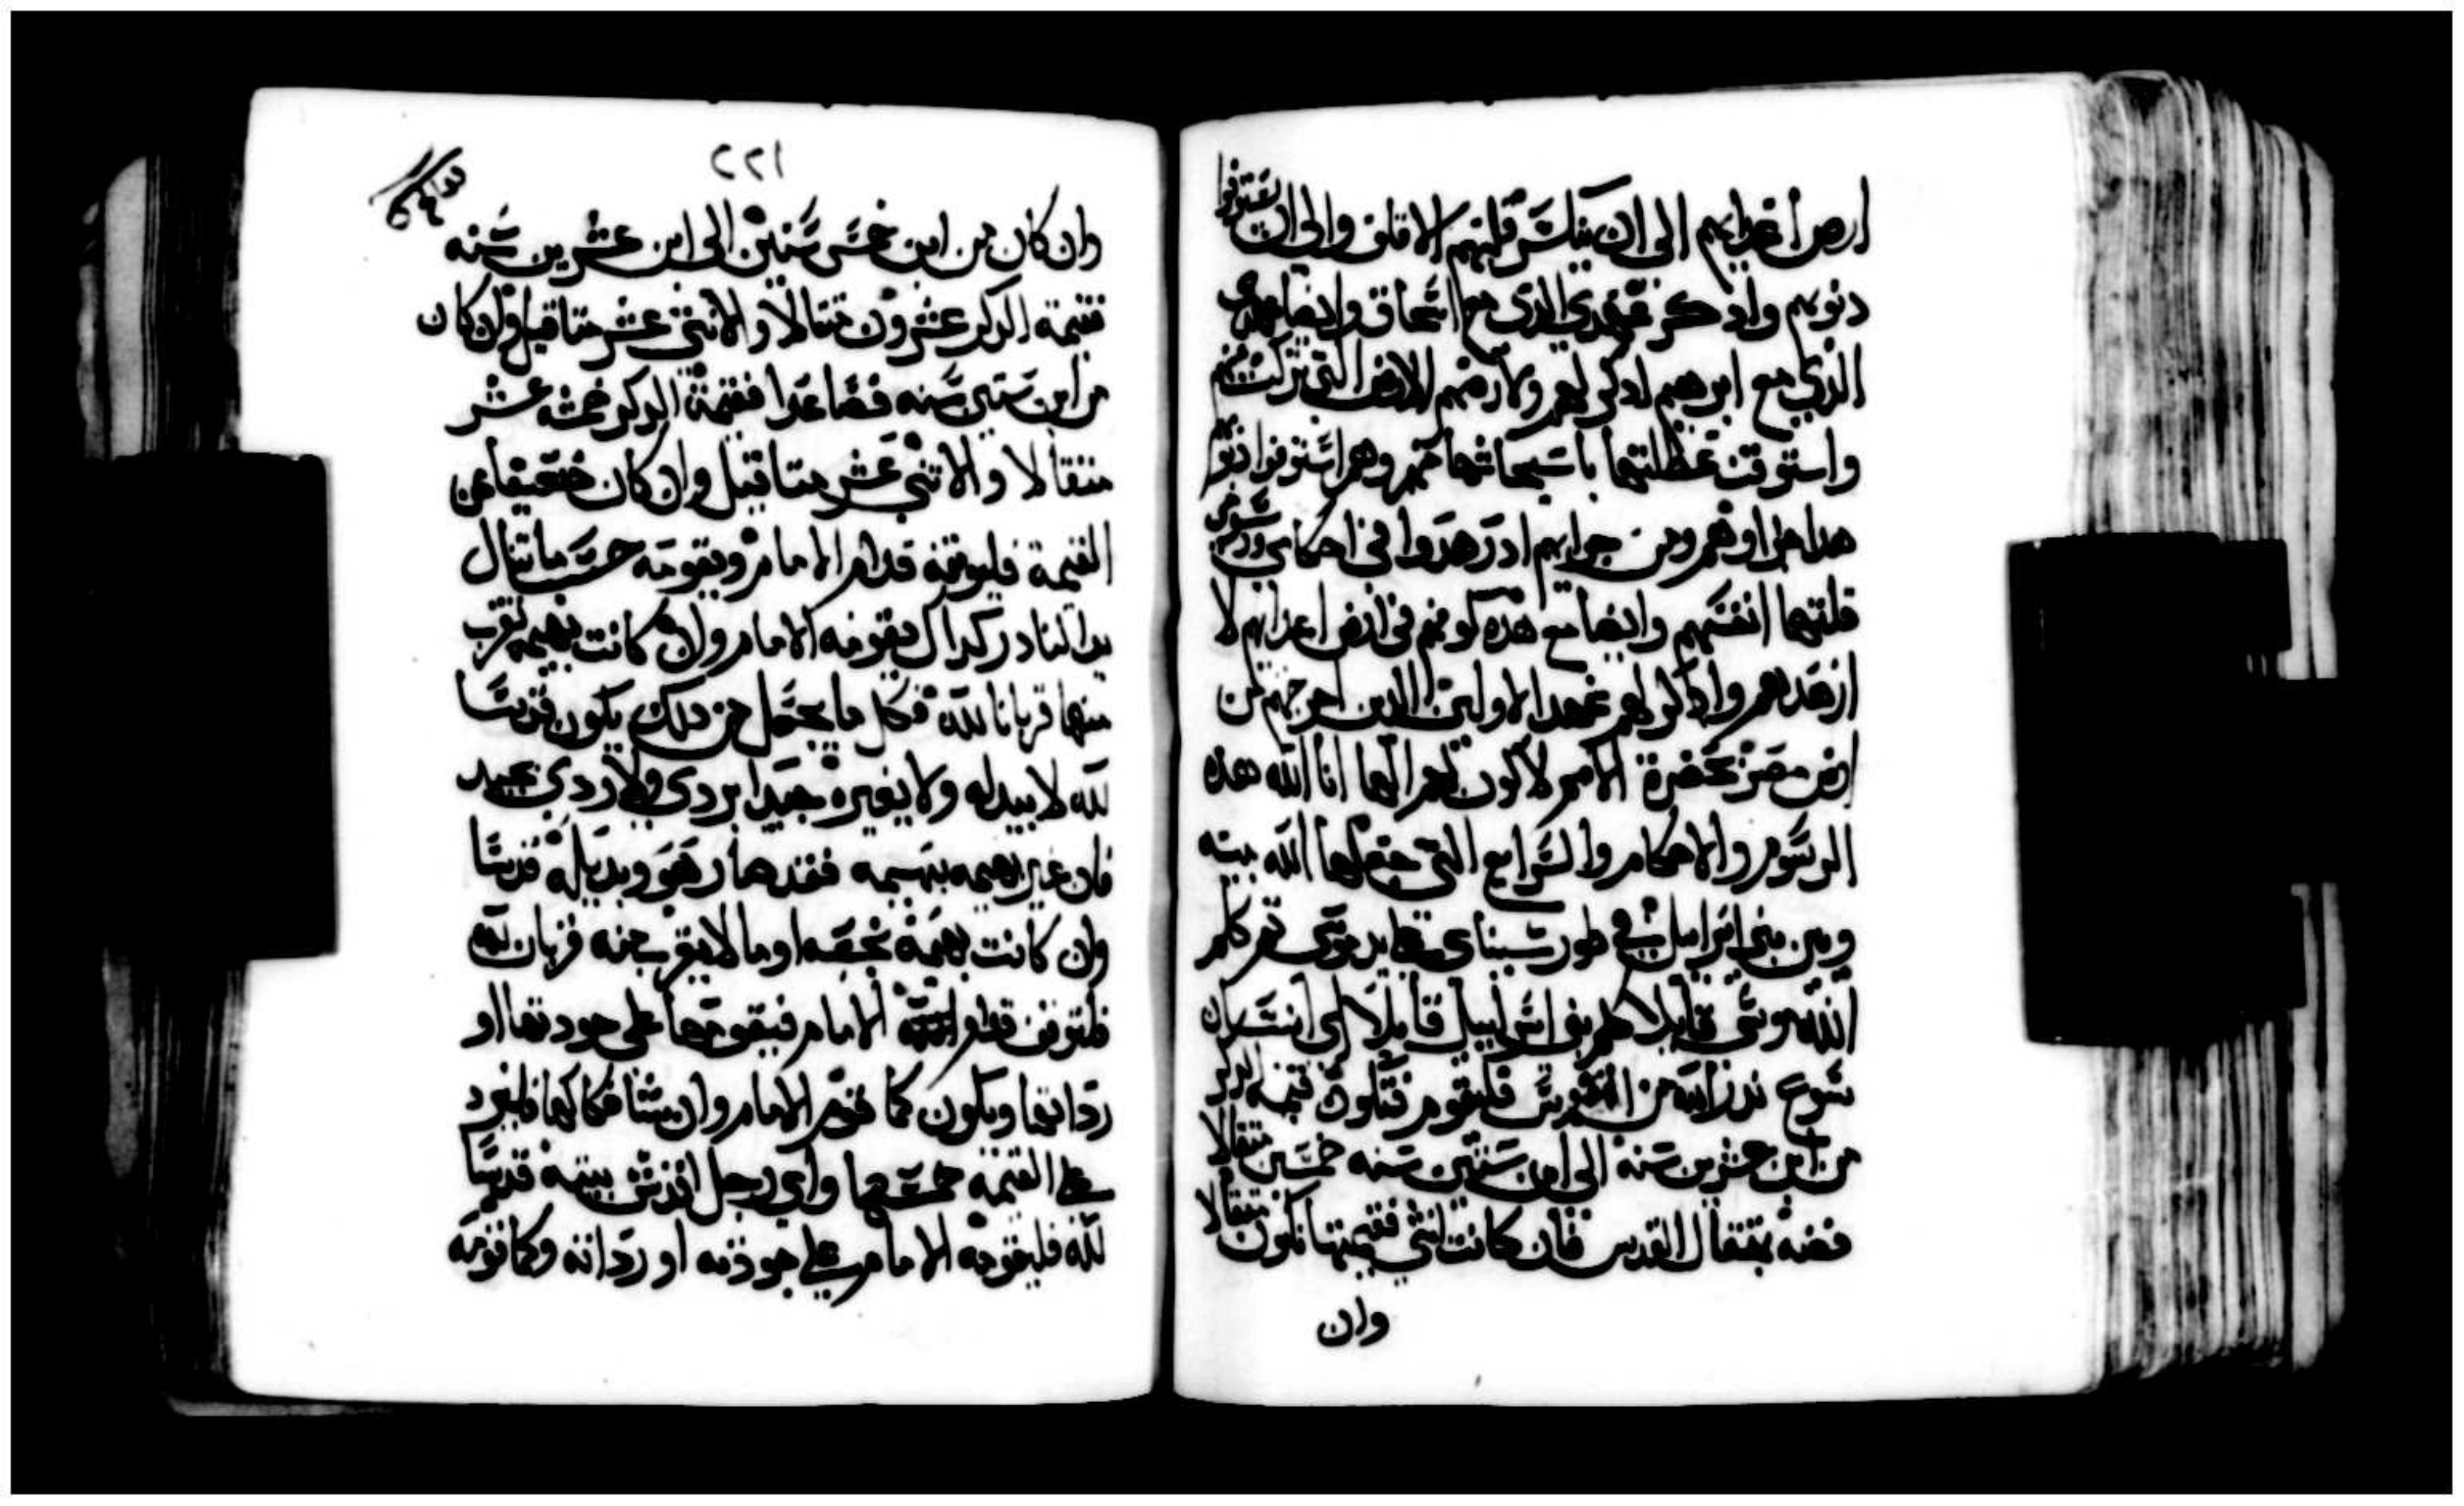 ارض اعدايهم الى ان ينكسر قلبهم الاقلف والى ان يستوفوا
دنوبهم وادكر عهدي الدي مع اسحاق وايضا عهدي
الدي مع ابرهيم ادكر لهم ولارضهم الارض التي تركت منهم
واستوفت عطلتها باستيحاشها منهم وهم استوفوا دنوبهم
هدا جزاوهم ومن جرايهم اد زهدوا في احكامي ورسومي
قلتها انفسهم وايضا مع هذه كونهم في ارض اعدايهم لا
ازهدهم وادكر لهم عهد الاولين الدين اخرجتهم من
ارض مصر بحضرة الامم لاكون لهم الها انا الله هذه
الرسوم والاحكام والشرايع التي جعلها الله بينه
وبين بني اسراييل في طور سيناي على يد موسى ثم كلم
الله موسى قايلا كلم بني اسراييل قايلا اي انسان
شرع ندرا لله من النفوس فليقوم فتكون قيمة الدكر
من ابن عشرين سنة الى ابن ستين سنه خمسين مثقالا
فضه بمثقال القدس فان كانت انثى فقيمتها تكون مثقالا
وان
٢٢١
وان كان من ابن خمس سنين الى ابن عشرين سنه
فقيمة الدكر عشرون متقالا والانثى عشر مثاقيل وان كان
من ابن ستين سنه فصاعدا فقيمة الدكر خمسة عشر
مثقالا والانثى عشر مثاقيل وان كان ضعيفا عن
القيمة فليوقفه قدام الامام ويقومه حسب ما تنال
يد النادر كداك يقومه الامام وان كانت بهيمه يقرب
منها قربانا لله فكل ما يجعل من دلك يكون قدسا
لله لا يبدله ولا يغيره جيدا بردي ولا ردي بجيد
فان غير بهيمه ببهيمه فقد صار هو وبديله قدسا
وان كانت بهيمة نجسه او ما لا يقرب منه قربان لله
فلتوقف قدام الامام فيقومها على جودتها او
ردااتها ويكون كما قوم الامام وان شا فكاكها فليزد
على القيمه خمسها واي رجل اقدس بيته قدسا
لله فليقومه الامام على جودته او ردااته وكما قومه